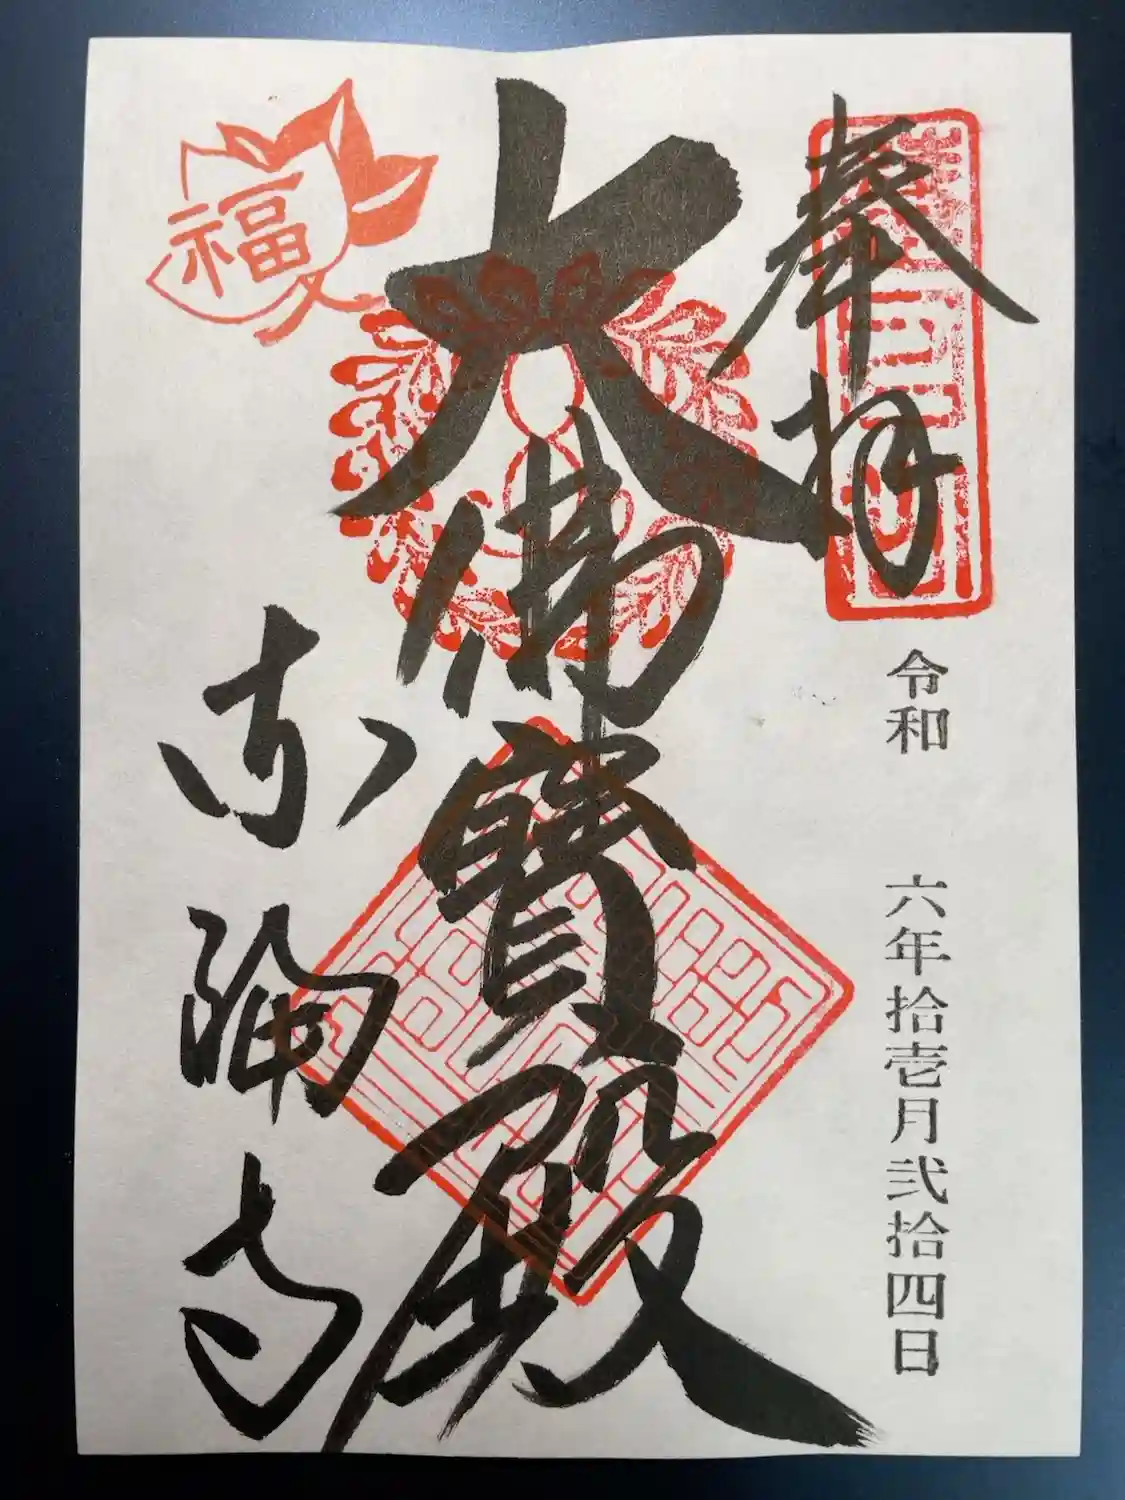 奉拝
令和 六年拾壱月弐拾四日
大佛寶殿
寺
福